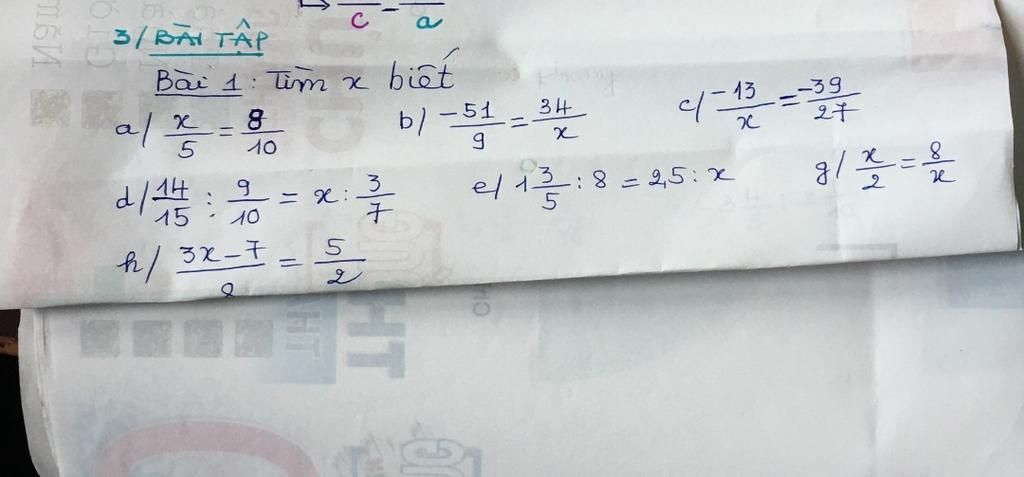 c a
3/ BÀI TẬP
Bài 1: Tìm x biết
a/ x/5 = 8/10 b/ -51/9 = 34/x c/ -13/x = -39/27
d/ 14/15 : 9/10 = x : 3/7 e/ 1 3/5 : 8 = 2,5 : x g/ x/2 = 8/x
h/ 3x-7/8 = 5/2